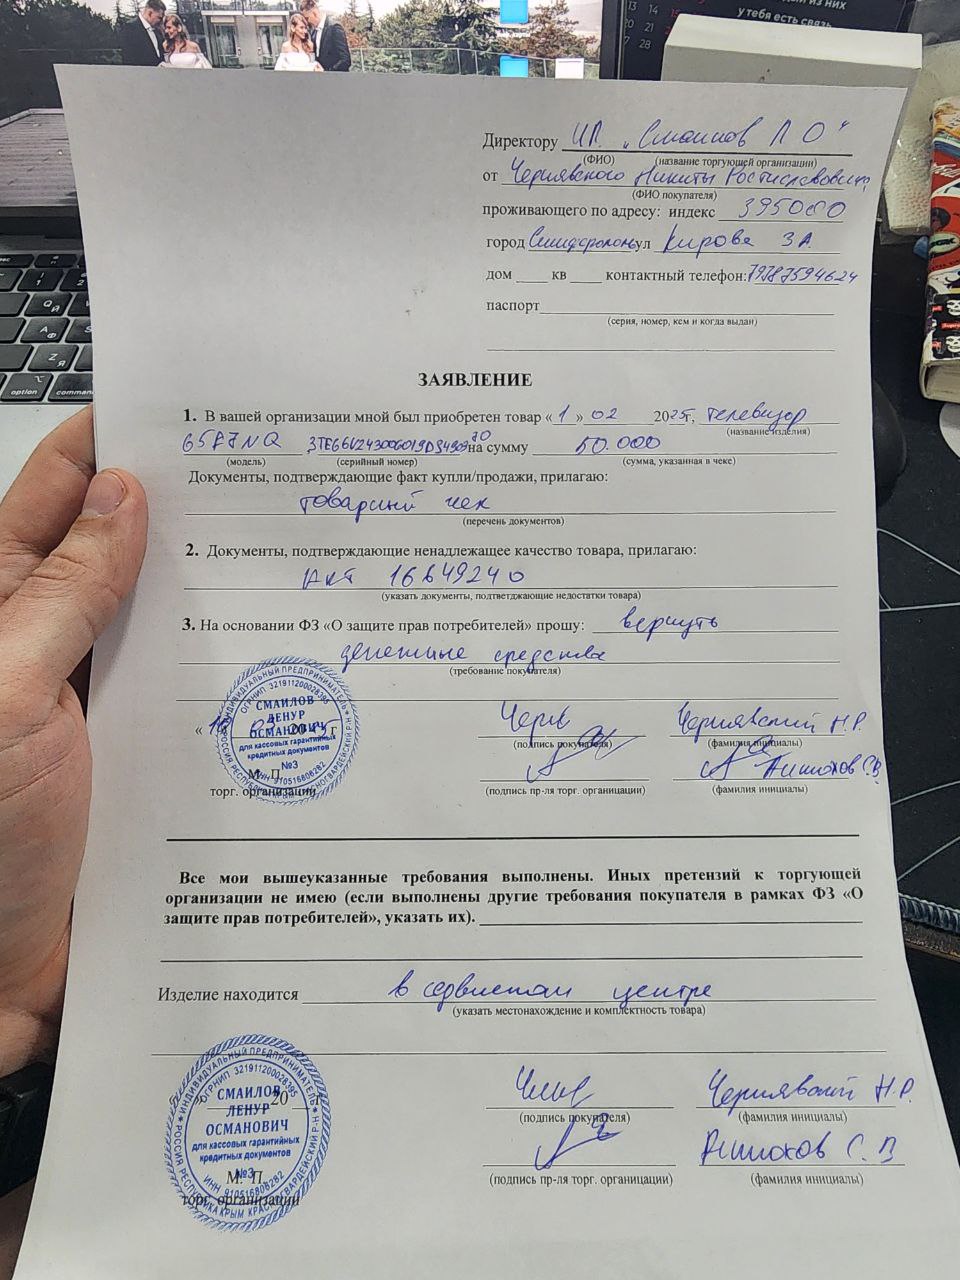 у тебя есть связь
Директору ИП. „Смаилов Л О"
(ФИО) (название торгующей организации)
от Чернявского Никиты Ростиславовича
(ФИО покупателя)
проживающего по адресу: индекс 395000
город Симферополь ул Кирова 3А
дом ____ кв ____ контактный телефон: 79787594624
паспорт
(серия, номер, кем и когда выдан)
ЗАЯВЛЕНИЕ
1. В вашей организации мной был приобретен товар « 1 » 02 2025г, телевизор
(название изделия)
65A7NQ на сумму 50.000
(модель) (серийный номер) (сумма, указанная в чеке)
Документы, подтверждающие факт купли/продажи, прилагаю:
товарный чек
(перечень документов)
2. Документы, подтверждающие ненадлежащее качество товара, прилагаю:
Акт
(указать документы, подтветджающие недостатки товара)
3. На основании ФЗ «О защите прав потребителей» прошу: вернуть
денежные средства
(требование покупателя)
Чернявский Н.Р.
(подпись покупателя) (фамилия инициалы)
М. П.
торг. организации (подпись пр-ля торг. органицации) (фамилия инициалы)
ИНДИВИДУАЛЬНЫЙ ПРЕДПРИНИМАТЕЛЬ
РОССИЯ РЕСПУБЛИКА КРЫМ КРАСНОГВАРДЕЙСКИЙ Р-Н
ОГРНИП 321911200028395
СМАИЛОВ
ЛЕНУР
ОСМАНОВИЧ
для кассовых гарантийных
кредитных документов
№3
ИНН 910516808282
Все мои вышеуказанные требования выполнены. Иных претензий к торгующей
организации не имею (если выполнены другие требования покупателя в рамках ФЗ «О
защите прав потребителей», указать их).
Изделие находится в сервисном центре
(указать местонахождение и комплектность товара)
20 г
Чернявский Н.Р.
(подпись покупателя) (фамилия инициалы)
М. П.
торг. организации (подпись пр-ля торг. органицации) (фамилия инициалы)
ИНДИВИДУАЛЬНЫЙ ПРЕДПРИНИМАТЕЛЬ
РОССИЯ РЕСПУБЛИКА КРЫМ КРАСНОГВАРДЕЙСКИЙ Р-Н
ОГРНИП 321911200028395
СМАИЛОВ
ЛЕНУР
ОСМАНОВИЧ
для кассовых гарантийных
кредитных документов
№3
ИНН 910516808282
option
command